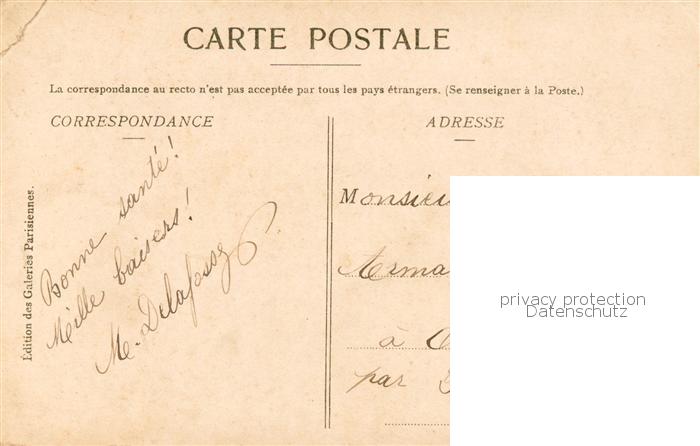 CARTE POSTALE
La correspondance au recto n'est pas acceptée par tous les pays étrangers. (Se renseigner à la Poste.)
CORRESPONDANCE
ADRESSE
Édition des Galeries Parisiennes.
Bonne santé!
Mille baisers!
M. Delafosse
Monsieu
Arma
à
par
privacy protection
Datenschutz